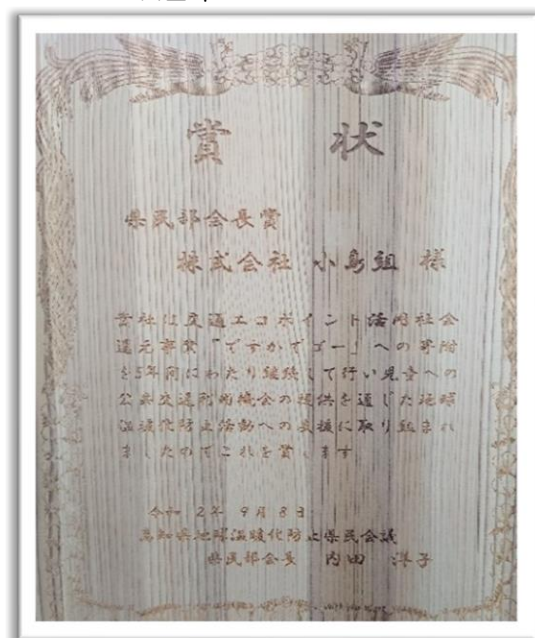 賞 状
県民部会長賞
株式会社 小島組 様
貴社は交通エコポイント活用社会
還元事業「ですかでゴー」への寄附
を5年間にわたり継続して行い児童への
公共交通利用機会の提供を通じた地球
温暖化防止活動への支援に取り組まれ
ましたのでこれを賞します
令和 2年 9月 8日
高知県地球温暖化防止県民会議
県民部会長 内田 洋子